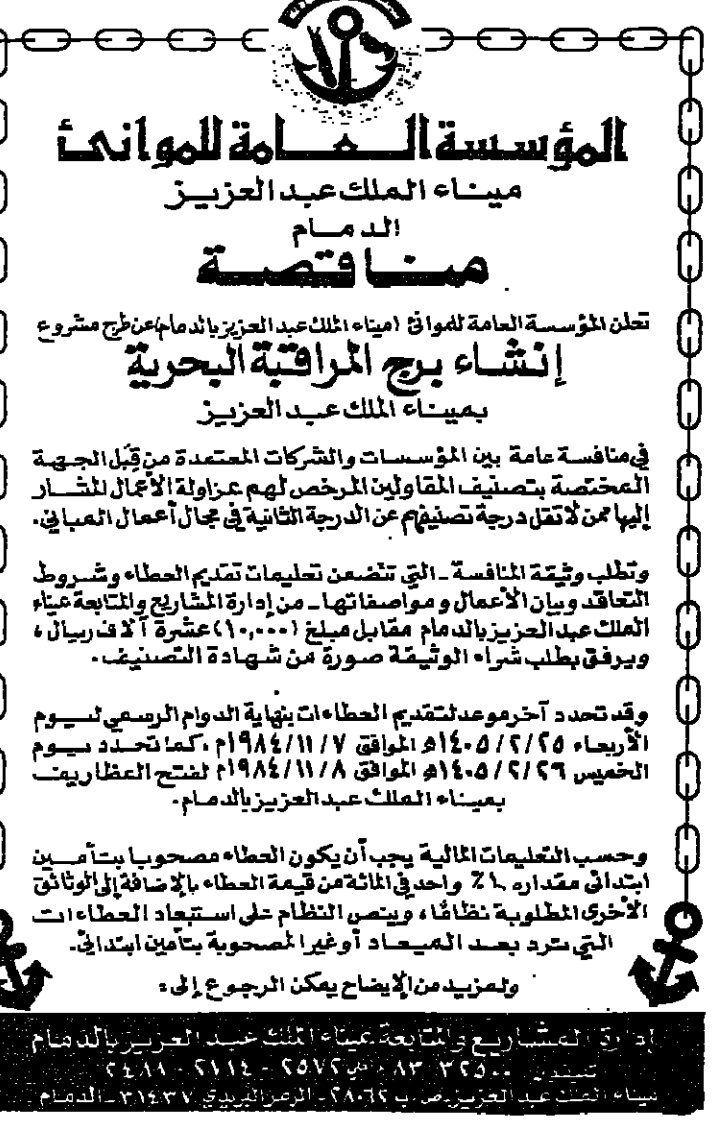 المؤسسة العامة للموانئ
ميناء الملك عبد العزيز
الدمام
مناقصة
تعلن المؤسسة العامة للموانئ (ميناء الملك عبد العزيز بالدمام) عن طرح مشروع
إنشاء برج المراقبة البحرية
بميناء الملك عبد العزيز
في منافسة عامة بين المؤسسات والشركات المعتمدة من قِبَل الجهة
المختصة بتصنيف المقاولين المرخص لهم بمزاولة الأعمال المشار
إليها ممن لا تقل درجة تصنيفهم عن الدرجة الثانية في مجال أعمال المباني.
وتطلب وثيقة المنافسة - التي تتضمن تعليمات تقديم العطاء وشروط
التعاقد وبيان الأعمال و مواصفاتها - من إدارة المشاريع والمتابعة بميناء
الملك عبد العزيز بالدمام مقابل مبلغ (١٠,٠٠٠) عشرة آلاف ريال ،
ويرفق بطلب شراء الوثيقة صورة من شهادة التصنيف .
وقد تحدد آخر موعد لتقديم العطاءات بنهاية الدوام الرسمي ليوم
الأربعاء ١٤٠٥/٢/٢٥هـ الموافق ١٩٨٤/١١/٧م ، كما تحدد يوم
الخميس ١٤٠٥/٢/٢٦هـ الموافق ١٩٨٤/١١/٨م لفتح المظاريف
بميناء الملك عبد العزيز بالدمام .
وحسب التعليمات المالية يجب أن يكون العطاء مصحوبا بتأمين
ابتدائي مقداره ١٪ واحد في المائة من قيمة العطاء بالإضافة إلى الوثائق
الأخرى المطلوبة نظامًا ، وينص النظام على استبعاد العطاءات
التي ترد بعد الميعاد أو غير المصحوبة بتأمين ابتدائي .
ولمزيد من الإيضاح يمكن الرجوع إلى :
إدارة المشاريع والمتابعة بميناء الملك عبد العزيز بالدمام
٨٣٣٢٥٠٠ ، ٢٥٧٢ - ٢١١٤ - ٢٤٨٩
ميناء الملك عبد العزيز ص . ب ٢٨٠٦٢ - الرمز البريدي ٣١٤٣٧ - الدمام